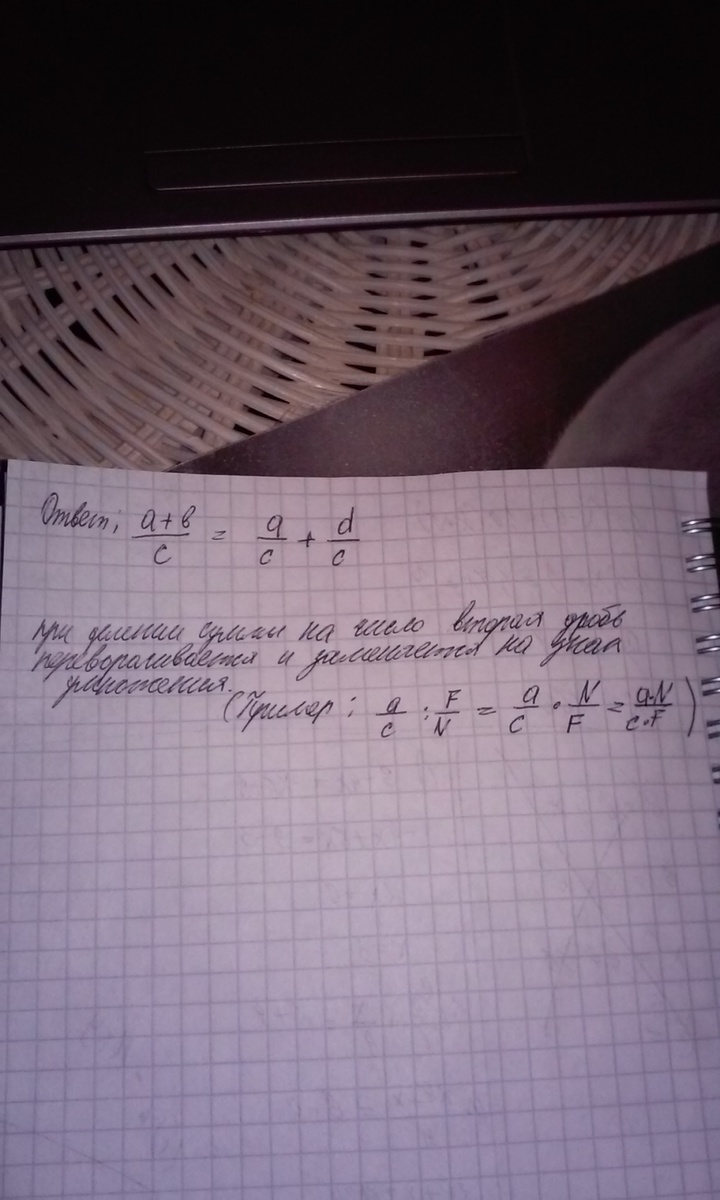 Ответ; a+b/c = a/c + d/c
при делении суммы на число вторая дробь
переворачивается и заменяется на знак
умножения.
(Пример: a/c : F/N = a/c · N/F = a·N/c·F)